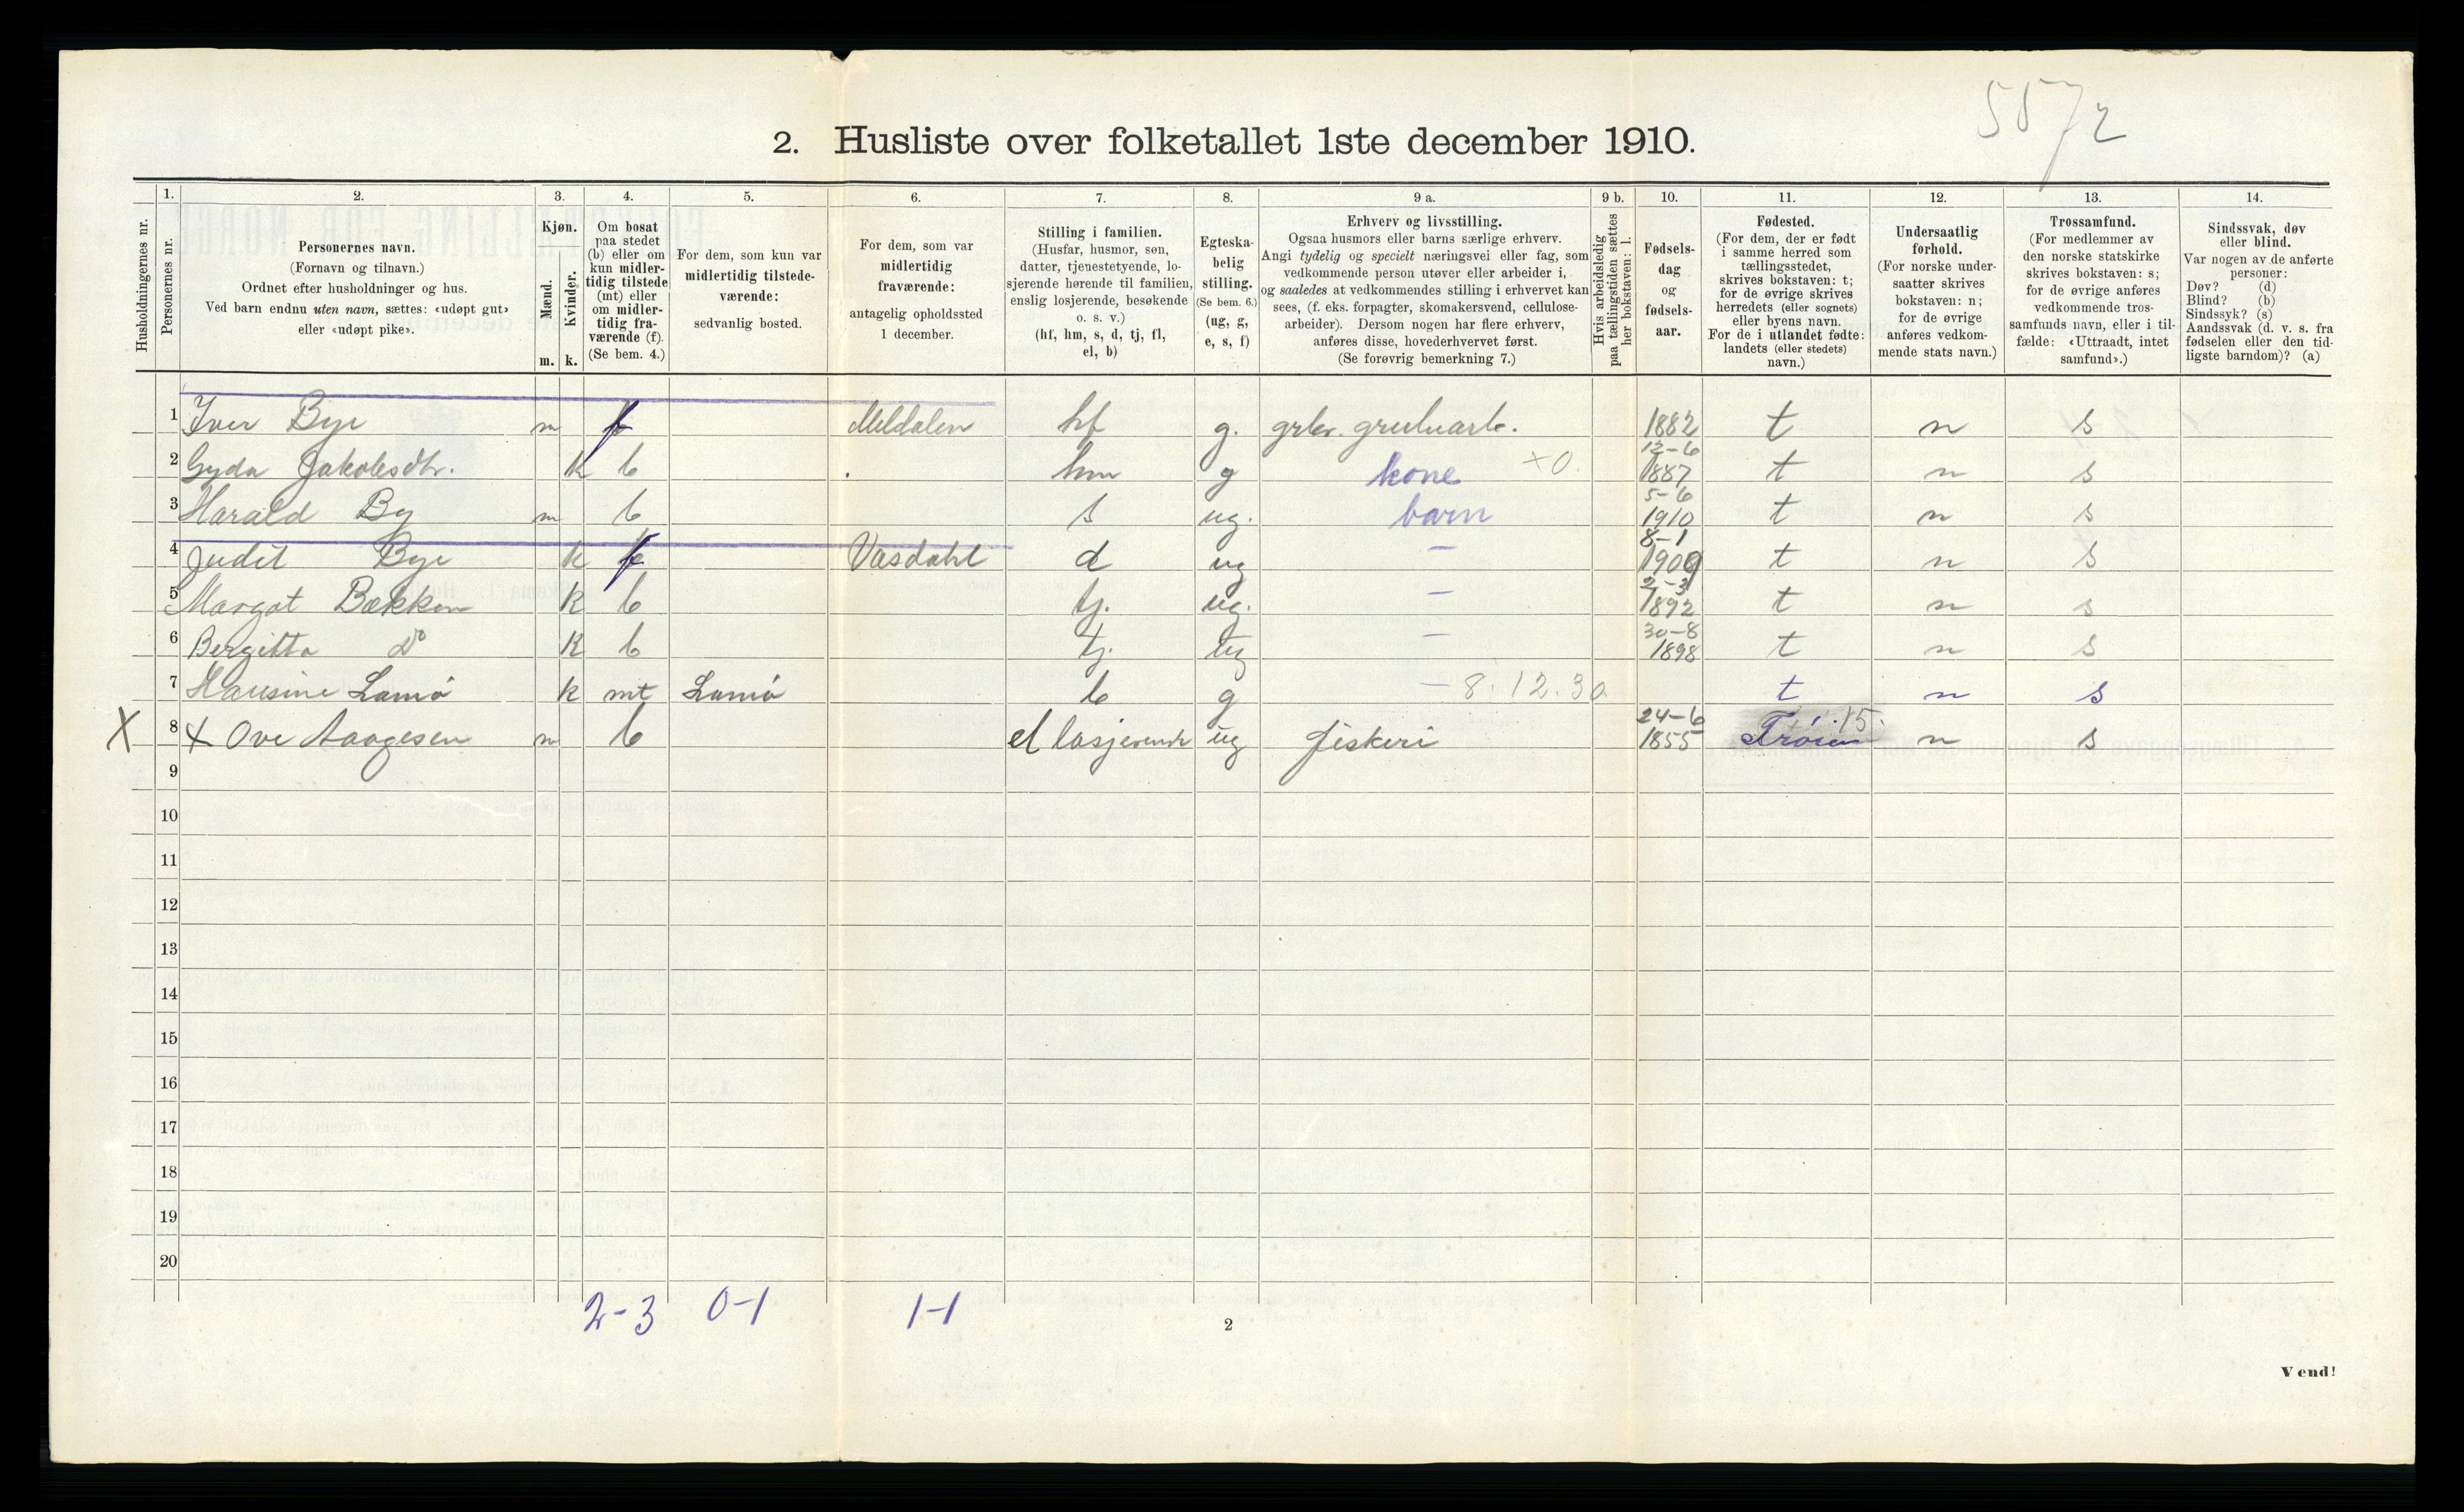 5572
2. Husliste over folketallet 1ste december 1910.
Husholdningernes nr.
1. Personernes nr.
2. Personernes navn.
(Fornavn og tilnavn.)
Ordnet efter husholdninger og hus.
Ved barn endnu uten navn, sættes: «udøpt gut»
eller «udøpt pike».
3. Kjøn.
Mænd. m.
Kvinder. k.
4. Om bosat
paa stedet
(b) eller om
kun midler-
tidig tilstede
(mt) eller
om midler-
tidig fra-
værende (f).
(Se bem. 4.)
5. For dem, som kun var
midlertidig tilstede-
værende:
sedvanlig bosted.
6. For dem, som var
midlertidig
fraværende:
antagelig opholdssted
1 december.
7. Stilling i familien.
(Husfar, husmor, søn,
datter, tjenestetyende, lo-
sjerende hørende til familien,
enslig losjerende, besøkende
o. s. v.)
(hf, hm, s, d, tj, fl,
el, b)
8. Egteska-
belig
stilling.
(Se bem. 6.)
(ug, g,
e, s, f)
9 a. Erhverv og livsstilling.
Ogsaa husmors eller barns særlige erhverv.
Angi tydelig og specielt næringsvei eller fag, som
vedkommende person utøver eller arbeider i,
og saaledes at vedkommendes stilling i erhvervet kan
sees, (f. eks. forpagter, skomakersvend, cellulose-
arbeider). Dersom nogen har flere erhverv,
anføres disse, hovederhvervet først.
(Se forøvrig bemerkning 7.)
9 b. Hvis arbeidsledig
paa tællingstiden sættes
her bokstaven: l.
10. Fødsels-
dag
og
fødsels-
aar.
11. Fødested.
(For dem, der er født
i samme herred som
tællingsstedet,
skrives bokstaven: t;
for de øvrige skrives
herredets (eller sognets)
eller byens navn.
For de i utlandet fødte:
landets (eller stedets)
navn.)
12. Undersaatlig
forhold.
(For norske under-
saatter skrives
bokstaven: n;
for de øvrige
anføres vedkom-
mende stats navn.)
13. Trossamfund.
(For medlemmer av
den norske statskirke
skrives bokstaven: s;
for de øvrige anføres
vedkommende tros-
samfunds navn, eller i til-
fælde: «Uttraadt, intet
samfund».)
14. Sindssvak, døv
eller blind.
Var nogen av de anførte
personer:
Døv? (d)
Blind? (b)
Sindssyk? (s)
Aandssvak (d. v. s. fra
fødselen eller den tid-
ligste barndom)? (a)
1 Iver Bye m f Meldalen hf g. grbr. grubuarb. 1882 t n s
2 Gyda Jakobsdtr. k b hm g kone +0. 12-6 1887 t n s
3 Harald By m b s ug. barn 5-6 1910 t n s
4 Judit Bye k f Vasdahl d ug - 8-1 1909 t n s
5 Margot Bækken k b tj. ug. - 1892 t n s
6 Bergitta do k b tj. ug - 30-8 1898 t n s
7 Hansine Lamø k mt Lamø b g - 8.12.30 t n s
X 8 X Ove Aagesen m b el losjerende ug fiskeri 24-6 1855 Frøien 15. n s
9
10
11
12
13
14
15
16
17
18
19
20
2-3 0-1 1-1
2
Vend!